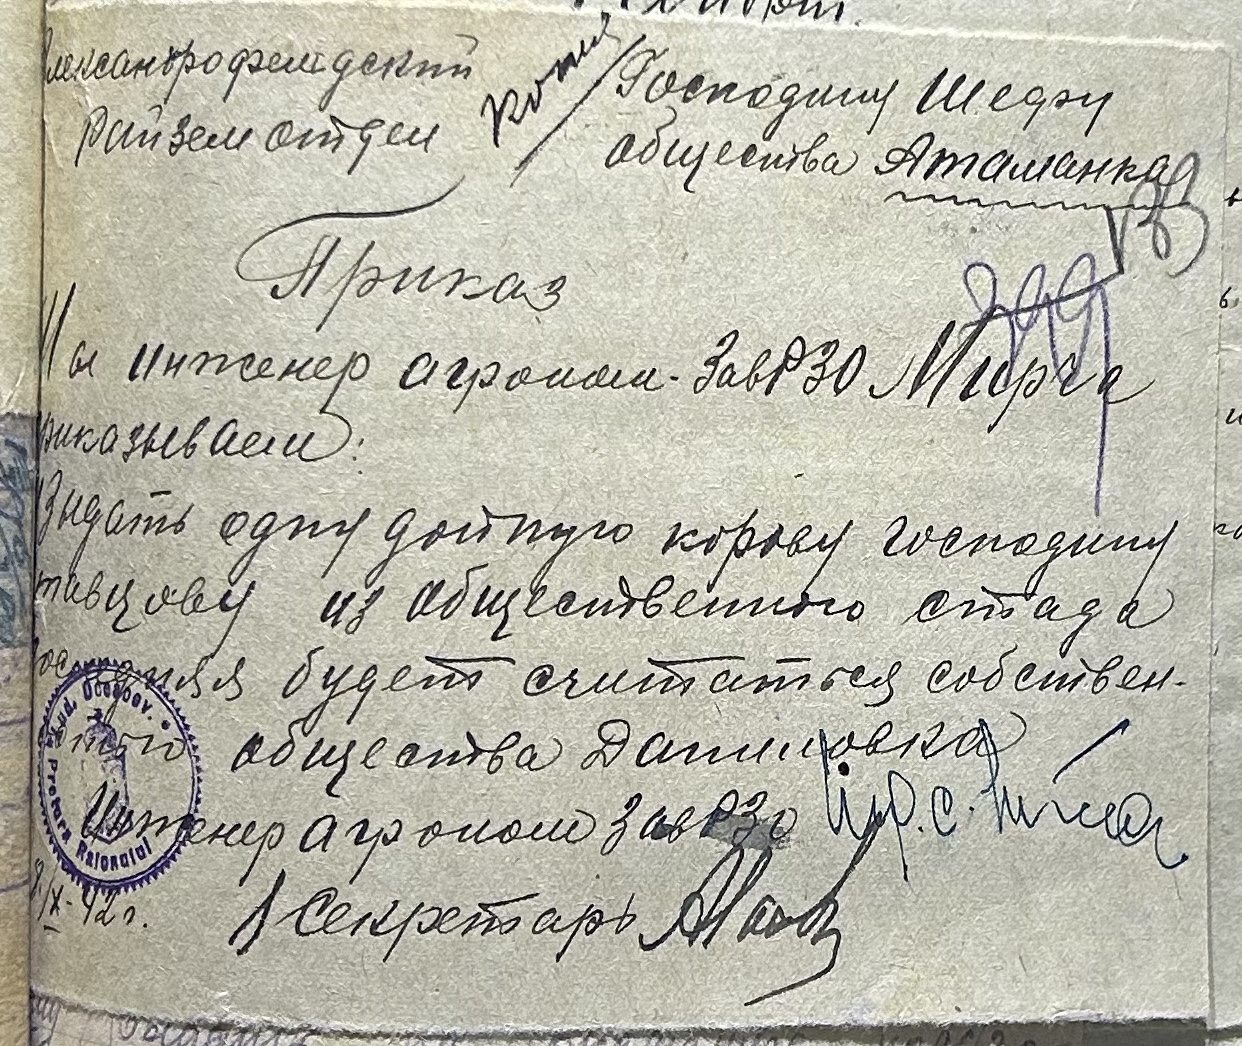 Александрфельдский
Райземотдел
Копия
Господину Шефу
общества Атаманка
Приказ
Мы инженер агроном-ЗавРЗО Мирча
приказываем:
Выдать одну дойную корову господину
из общественного стада
будет считаться собствен-
общества Даниловка
Инженер агроном ЗавРЗО
Jud. Oceacov
Pretura Raionului
IX-42г.
Секретарь